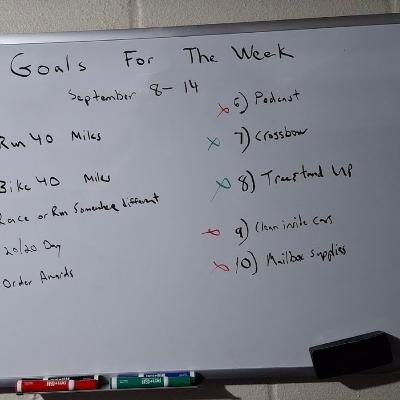 Goals For The Week
September 8-14
Run 40 Miles
Bike 40 Miles
Race or Run Somewhere different
20/20 Day
Order Awards
x 6) Podcast
x 7) Crossbow
x 8) Treestand Up
x 9) Clean inside cars
x 10) Mailbox Supplies